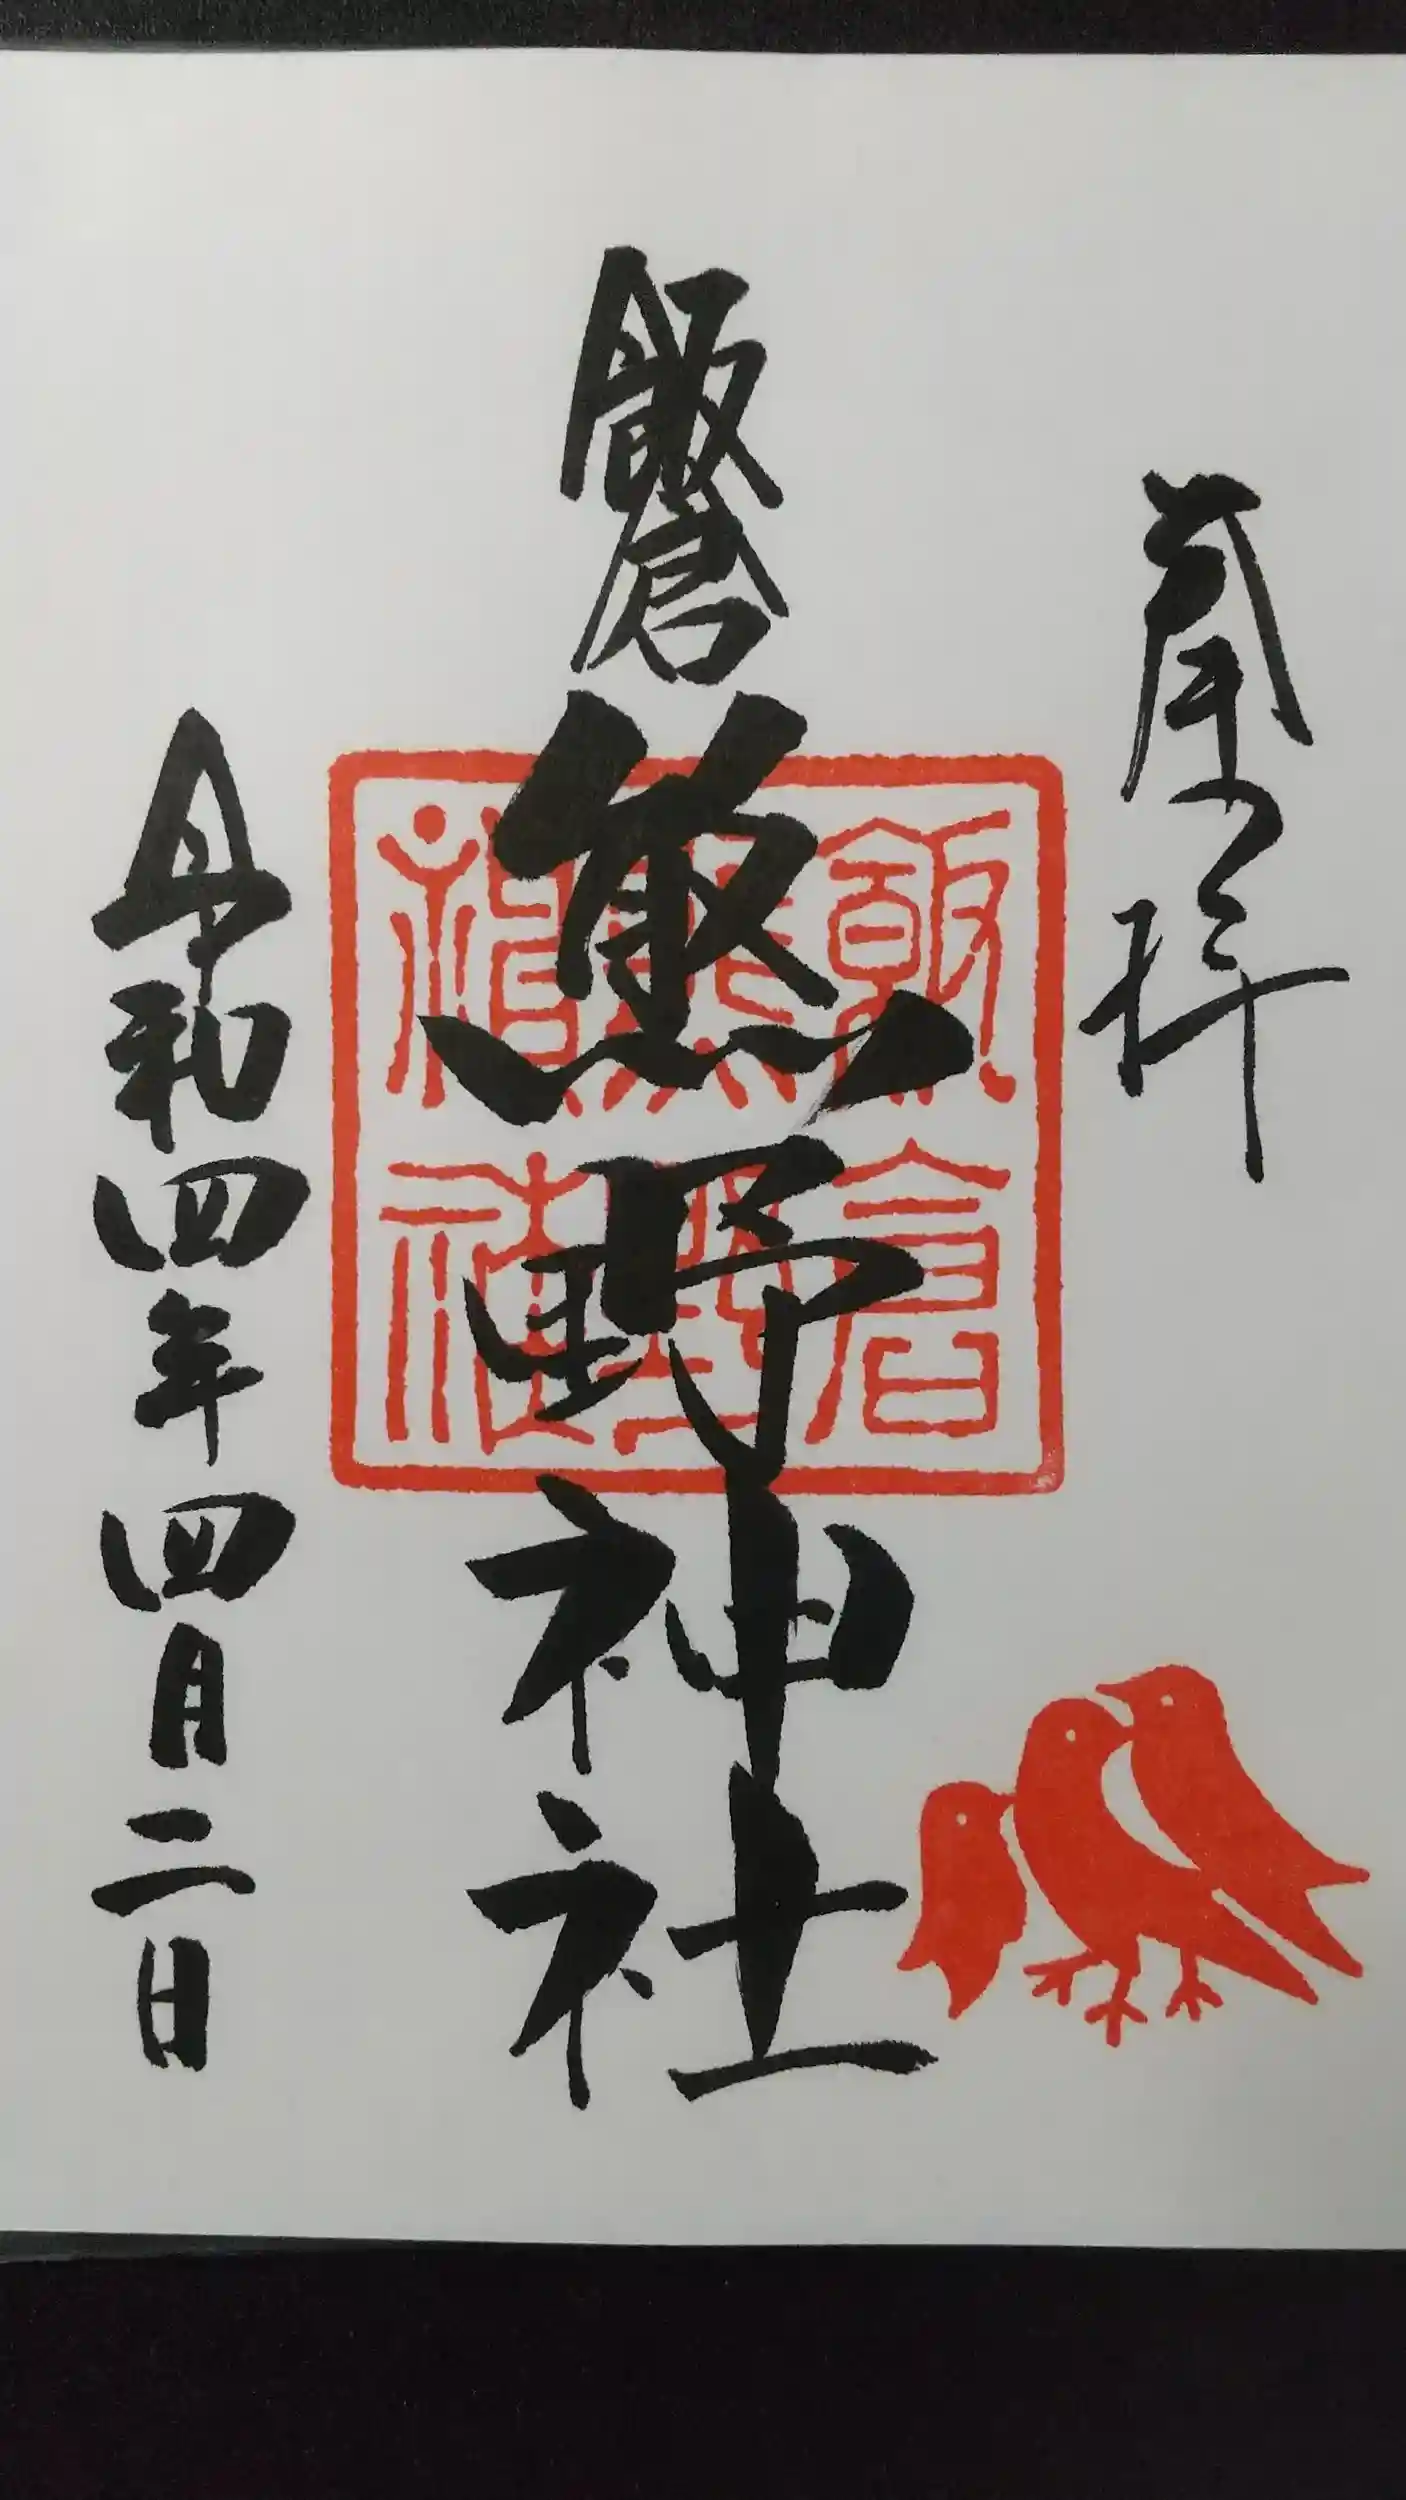 奉拝
飯倉熊野神社
令和四年四月二日
飯倉
熊野
神社